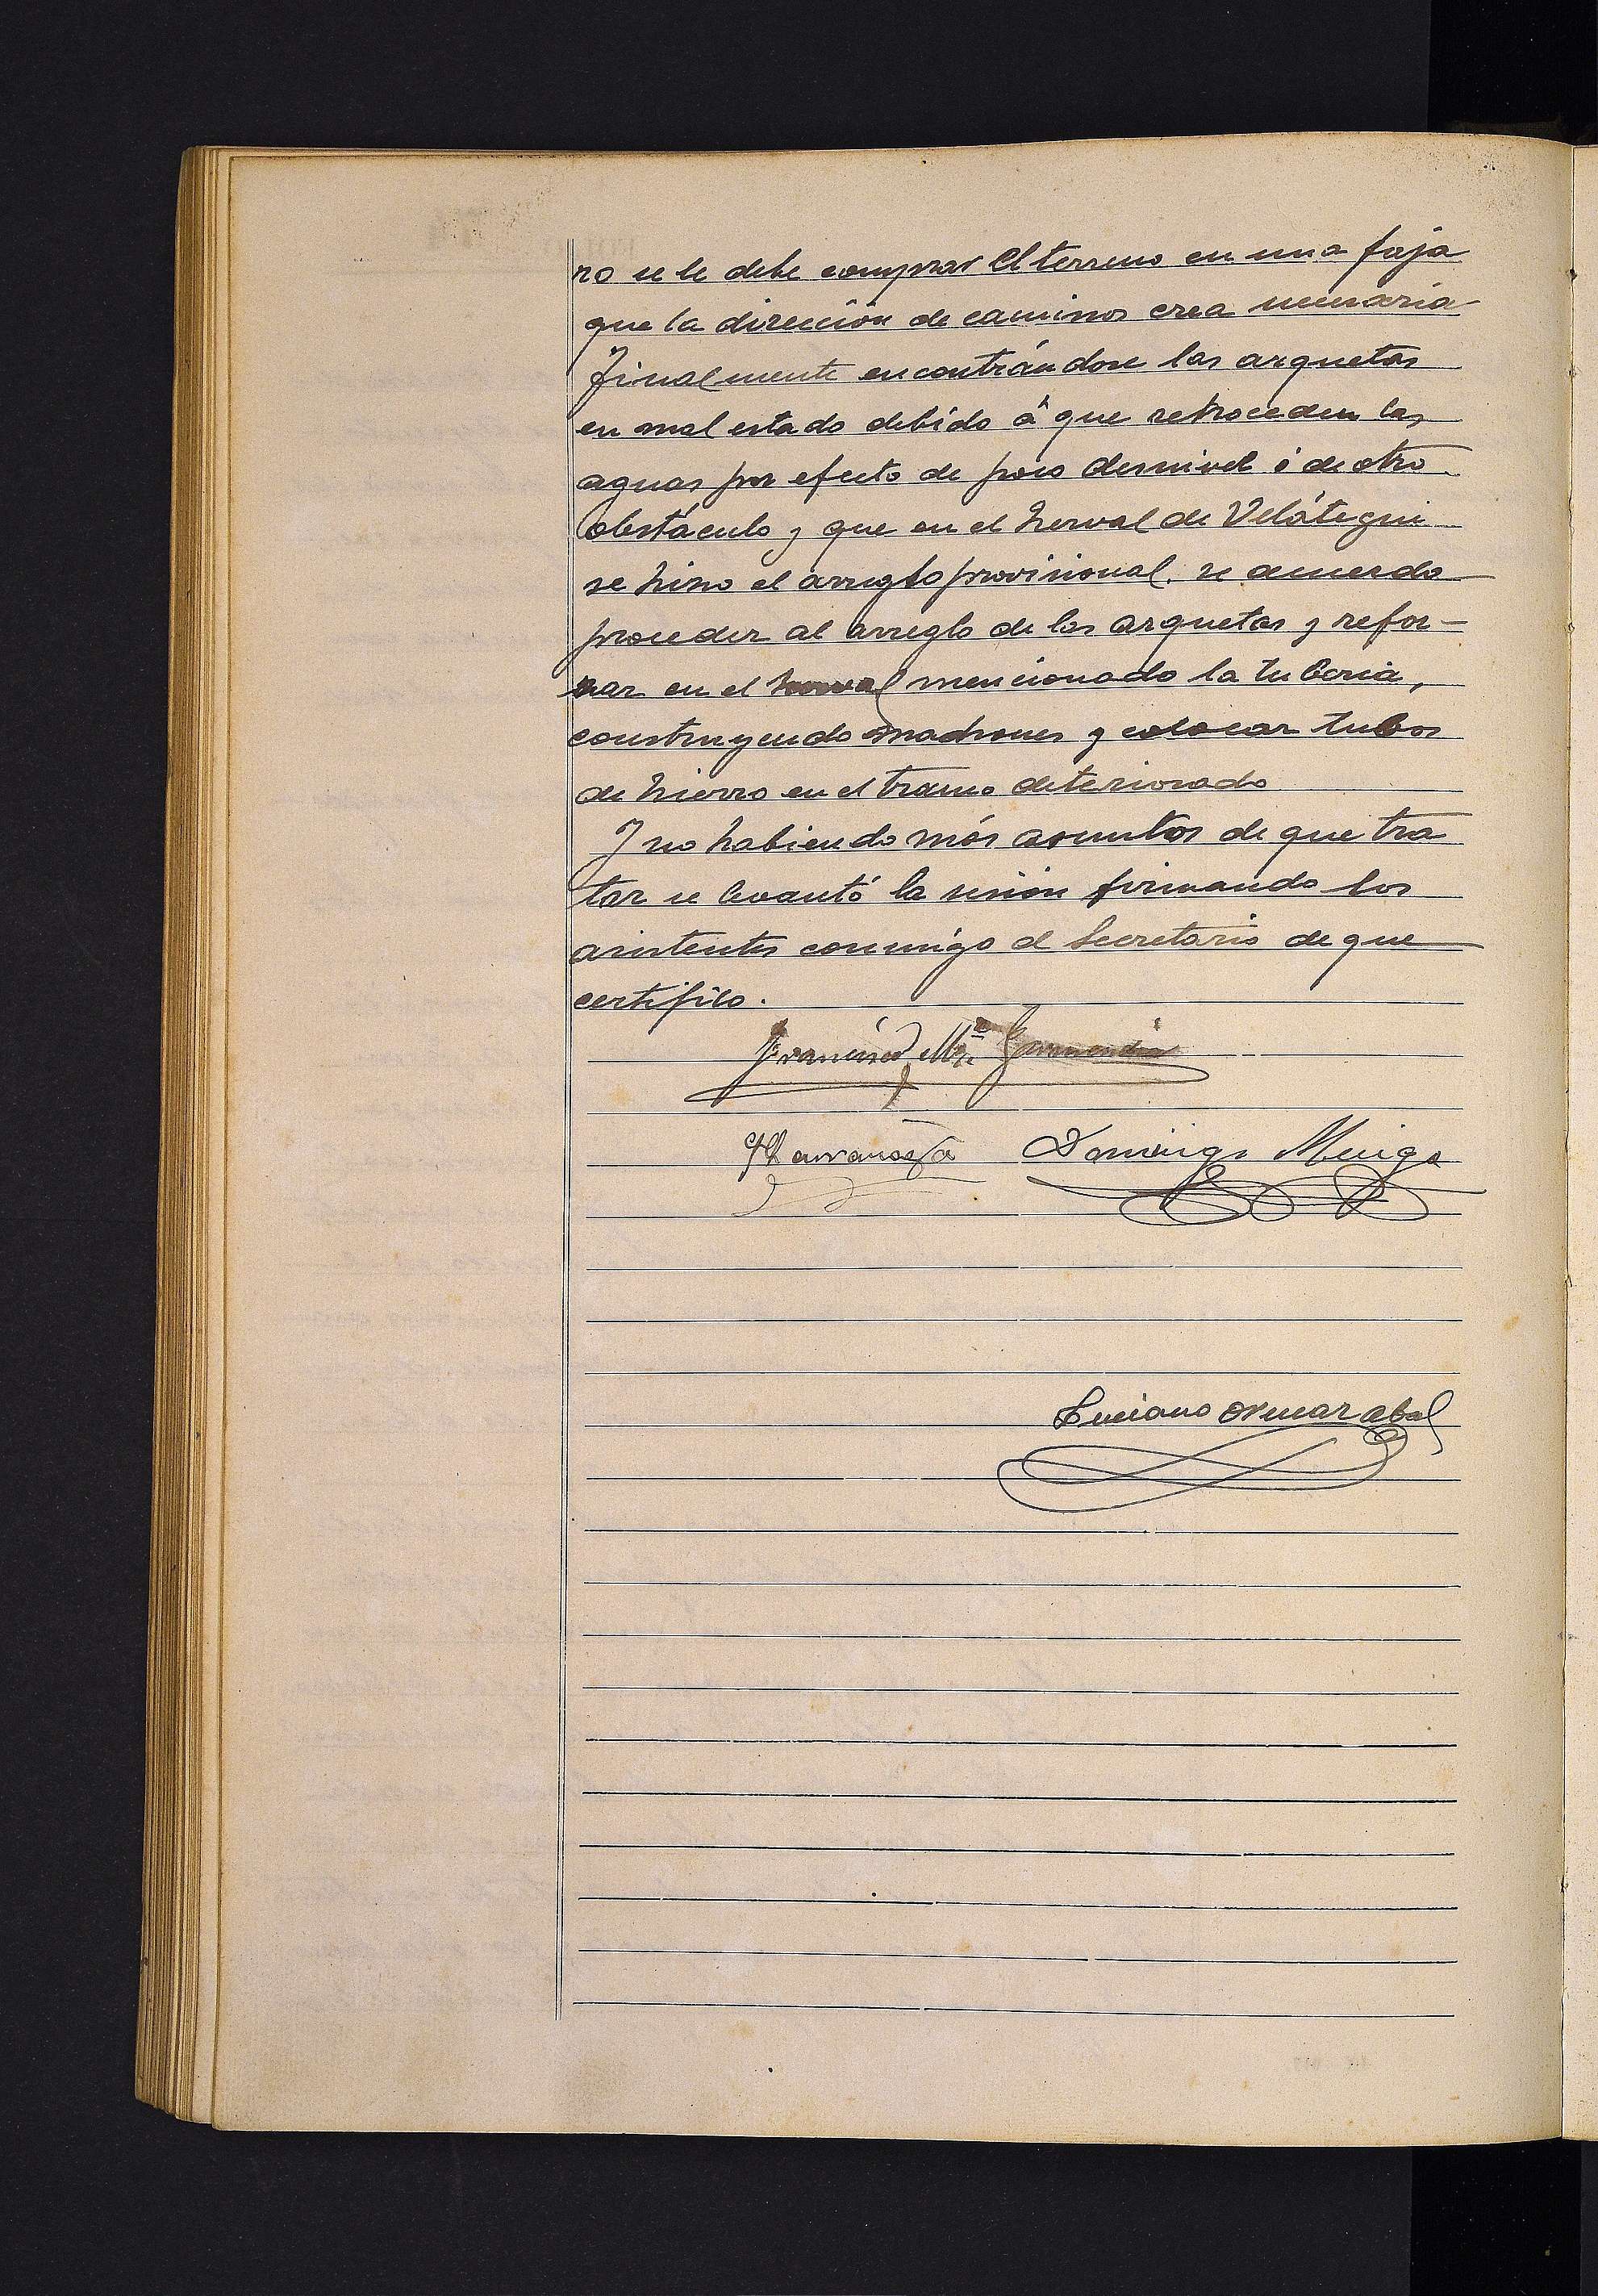 no se le debe comprar el terreno en una faja
que la direccion de caminos crea necesaria
Finalmente encontrándose las arquetas
en mal estado debido á que retroceden las
aguas por efecto de poco desnivel ó de otro
obstáculo y que en el herval de Velátegui
se hizo el arreglo provisional. se acuerda
proceder al arreglo de las arquetas y refor-
zar en el herval mencionado la tuberia,
construyendo machones y colocar tubos
de hierro en el tramo deteriorado
Y no habiendo más asuntos de que tra
tar se levantó la sesión firmando los
asistentes conmigo el Secretario de que
certifico.
Francisco Mª Garmendia
Domingo Muiga
Luciano